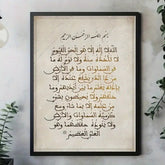 بسم الله الرحمن الرحيم
الله لا إله إلا هو الحي القيوم
لا تأخذه سنة ولا نوم له ما
في السماوات وما في الأرض
من ذا الذي يشفع عنده إلا
بإذنه يعلم ما بين أيديهم
وما خلفهم ولا يحيطون بشيء
من علمه إلا بما شاء وسع
كرسيه السماوات والأرض
ولا يئوده حفظهما وهو
العلي العظيم